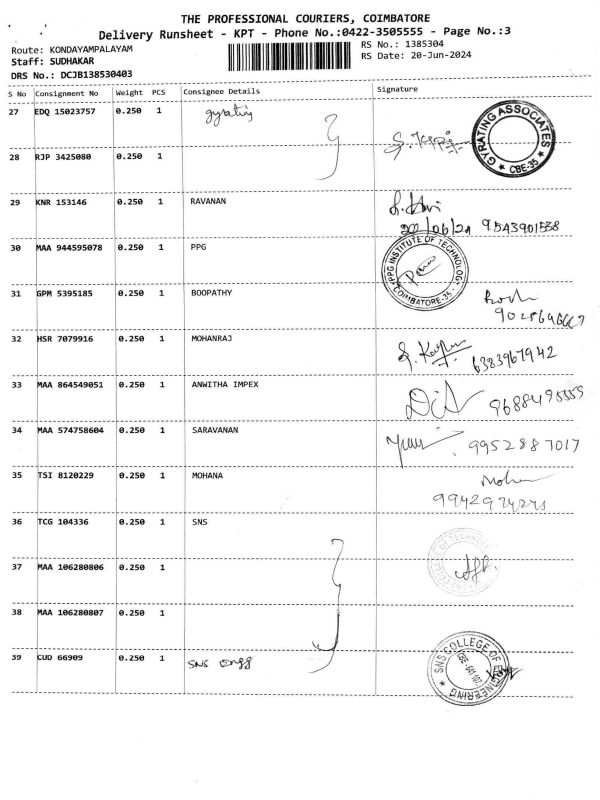 THE PROFESSIONAL COURIERS, COIMBATORE
Delivery Runsheet - KPT - Phone No.:0422-3505555 - Page No.:3
Route: KONDAYAMPALAYAM
RS No.: 1385304
Staff: SUDHAKAR
RS Date: 20-Jun-2024
DRS No.: DCJB138530403
S No Consignment No Weight PCS Consignee Details Signature
27 EDQ 15023757 0.250 1 gyrating
GYRATING ASSOCIATES * CBE-35 *
28 RJP 3425080 0.250 1
29 KNR 153146 0.250 1 RAVANAN
20/06/24 9543901538
30 MAA 944595078 0.250 1 PPG
PPG INSTITUTE OF TECHNOLOGY COIMBATORE-35
31 GPM 5395185 0.250 1 BOOPATHY
32 HSR 7079916 0.250 1 MOHANRAJ
6383967942
33 MAA 864549051 0.250 1 ANWITHA IMPEX
9688495559
34 MAA 574758604 0.250 1 SARAVANAN
9952887017
35 TSI 8120229 0.250 1 MOHANA
36 TCG 104336 0.250 1 SNS
SNS COLLEGE OF TECHNOLOGY
37 MAA 106280806 0.250 1
38 MAA 106280807 0.250 1
39 CUD 66909 0.250 1 SNS Engg
SNS COLLEGE OF ENGINEERING CBE-641 107